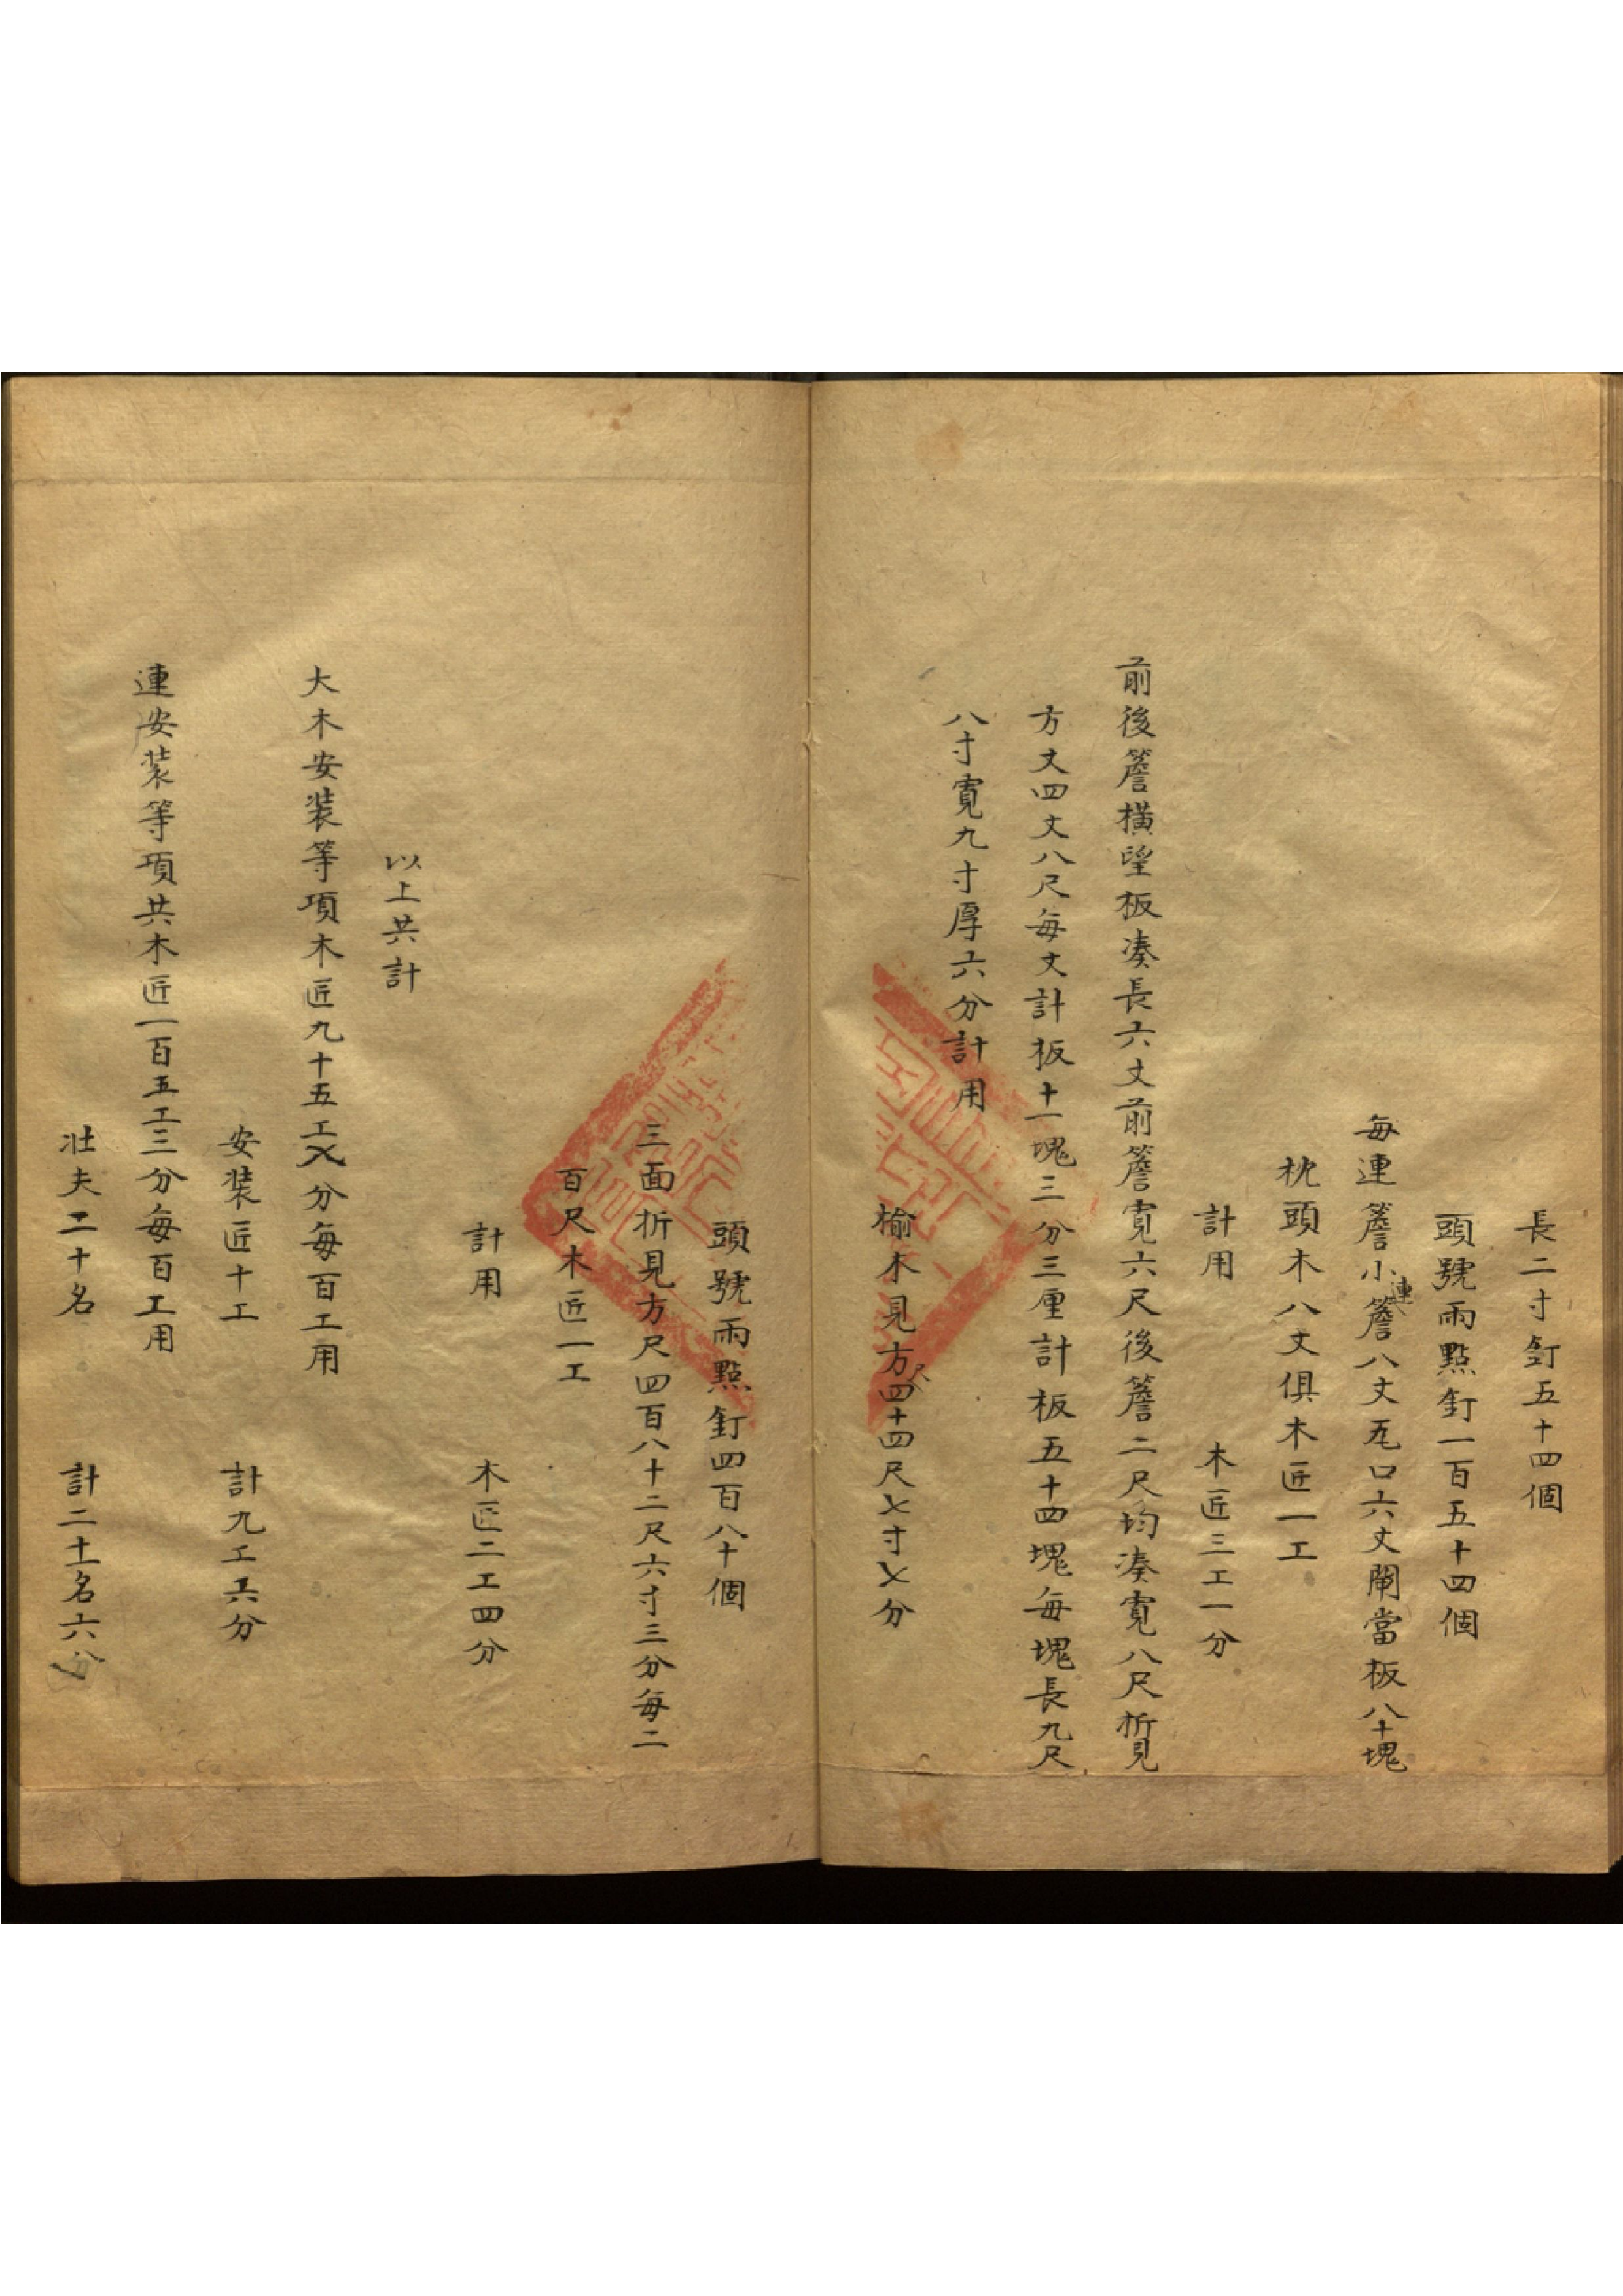 長二寸釘五十四個
頭號雨點釘一百五十四個
每連簷小連簷八丈瓦口六丈閘當板八十塊
枕頭木八丈俱木匠一工
計用 木匠三工一分
前後簷橫望板湊長六丈前簷寬六尺後簷二尺均湊寬八尺折見
方丈四丈八尺每丈計板十一塊三分三厘計板五十四塊每塊長九尺
八寸寬九寸厚六分計用
榆木見方尺四十四尺七寸七分
頭號雨點釘四百八十個
三面折見方尺四百八十二尺六寸三分每二
百尺木匠一工
計用 木匠二工四分
以上共計
大木安裝等項木匠九十五工八分每百工用
安裝匠十工 計九工六分
連安裝等項共木匠一百五工三分每百工用
壯夫二十名 計二十一名六分